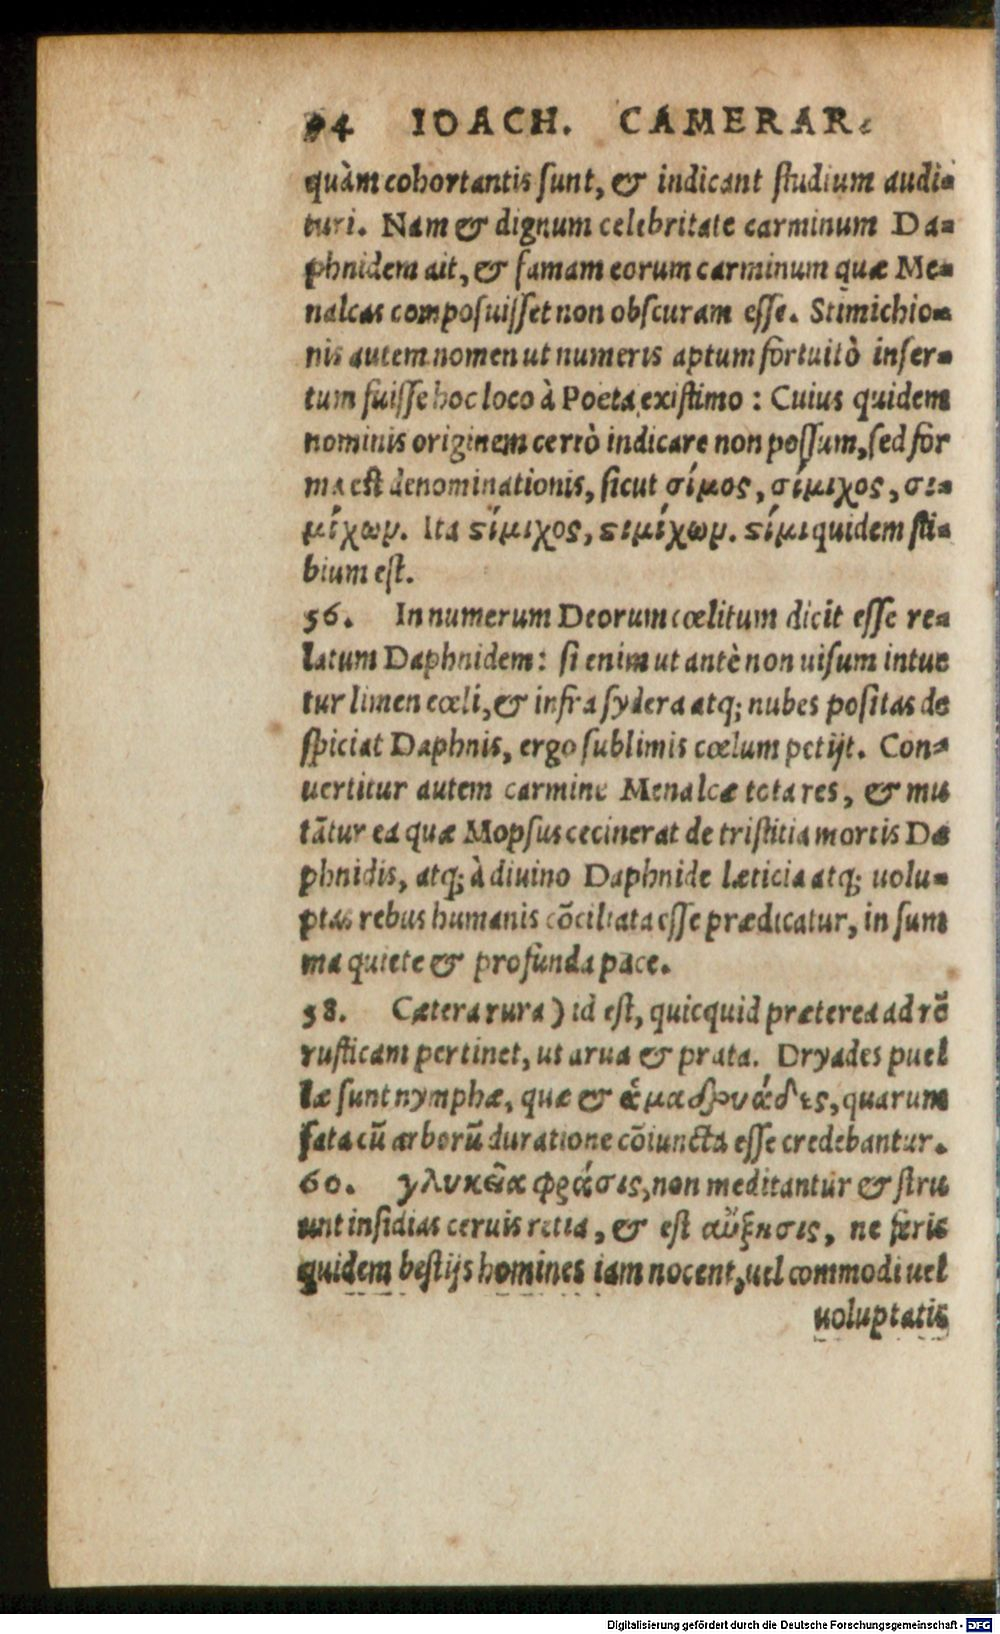 94 IOACH. CAMERAR.
quàm cohortantis sunt, & indicant studium audi-
turi. Nam & dignum celebritate carminum Da-
phnidem ait, & famam eorum carminum quæ Me-
nalcas composuisset non obscuram esse. Stimichio-
nis autem nomen ut numeris aptum fortuitò inser-
tum fuisse hoc loco à Poeta existimo : Cuius quidem
nominis originem certò indicare non possum, sed for
ma est denominationis, sicut σίμος, σίμιχος, σι-
μίχων. Ita ςίμιχος, ςιμίχων. ςίμι quidem sti-
bium est.
56. In numerum Deorum cœlitum dicit esse re-
latum Daphnidem: si enim ut antè non uisum intue
tur limen cœli, & infra sydera atq; nubes positas de
spiciat Daphnis, ergo sublimis cœlum petijt. Con-
uertitur autem carmine Menalcæ tota res, & mu
tātur ea quæ Mopsus cecinerat de tristitia mortis Da
phnidis, atq; à diuino Daphnide læticia atq; uolu-
ptas rebus humanis cōciliata esse prædicatur, in sum
ma quiete & profunda pace.
58. Cætera rura) id est, quicquid præterea ad rē
rusticam pertinet, ut arua & prata. Dryades puel
læ sunt nymphæ, quæ & ἁμαδρυάδες, quarum
fata cū arborū duratione cōiuncta esse credebantur.
60. γλυκεῖα φράσις, non meditantur & stru
unt insidias ceruis retia, & est αὔξησις, ne feris
quidem bestijs homines iam nocent, uel commodi uel
uoluptatis
Digitalisierung gefördert durch die Deutsche Forschungsgemeinschaft - DFG